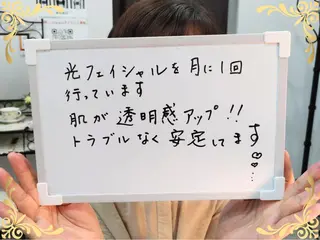 光フェイシャルを月に1回
行っています
肌が透明感アップ!!
トラブルなく安定してます♡♡…